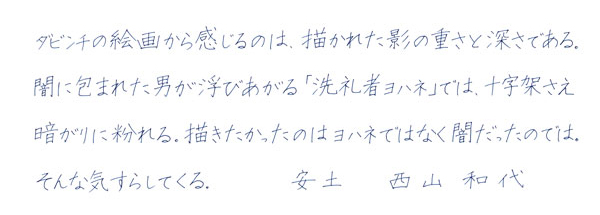 ダビンチの絵画から感じるのは、描かれた影の重さと深さである。
闇に包まれた男が浮びあがる「洗礼者ヨハネ」では、十字架さえ
暗がりに紛れる。描きたかったのはヨハネではなく闇だったのでは。
そんな気すらしてくる。 安土 西山和代